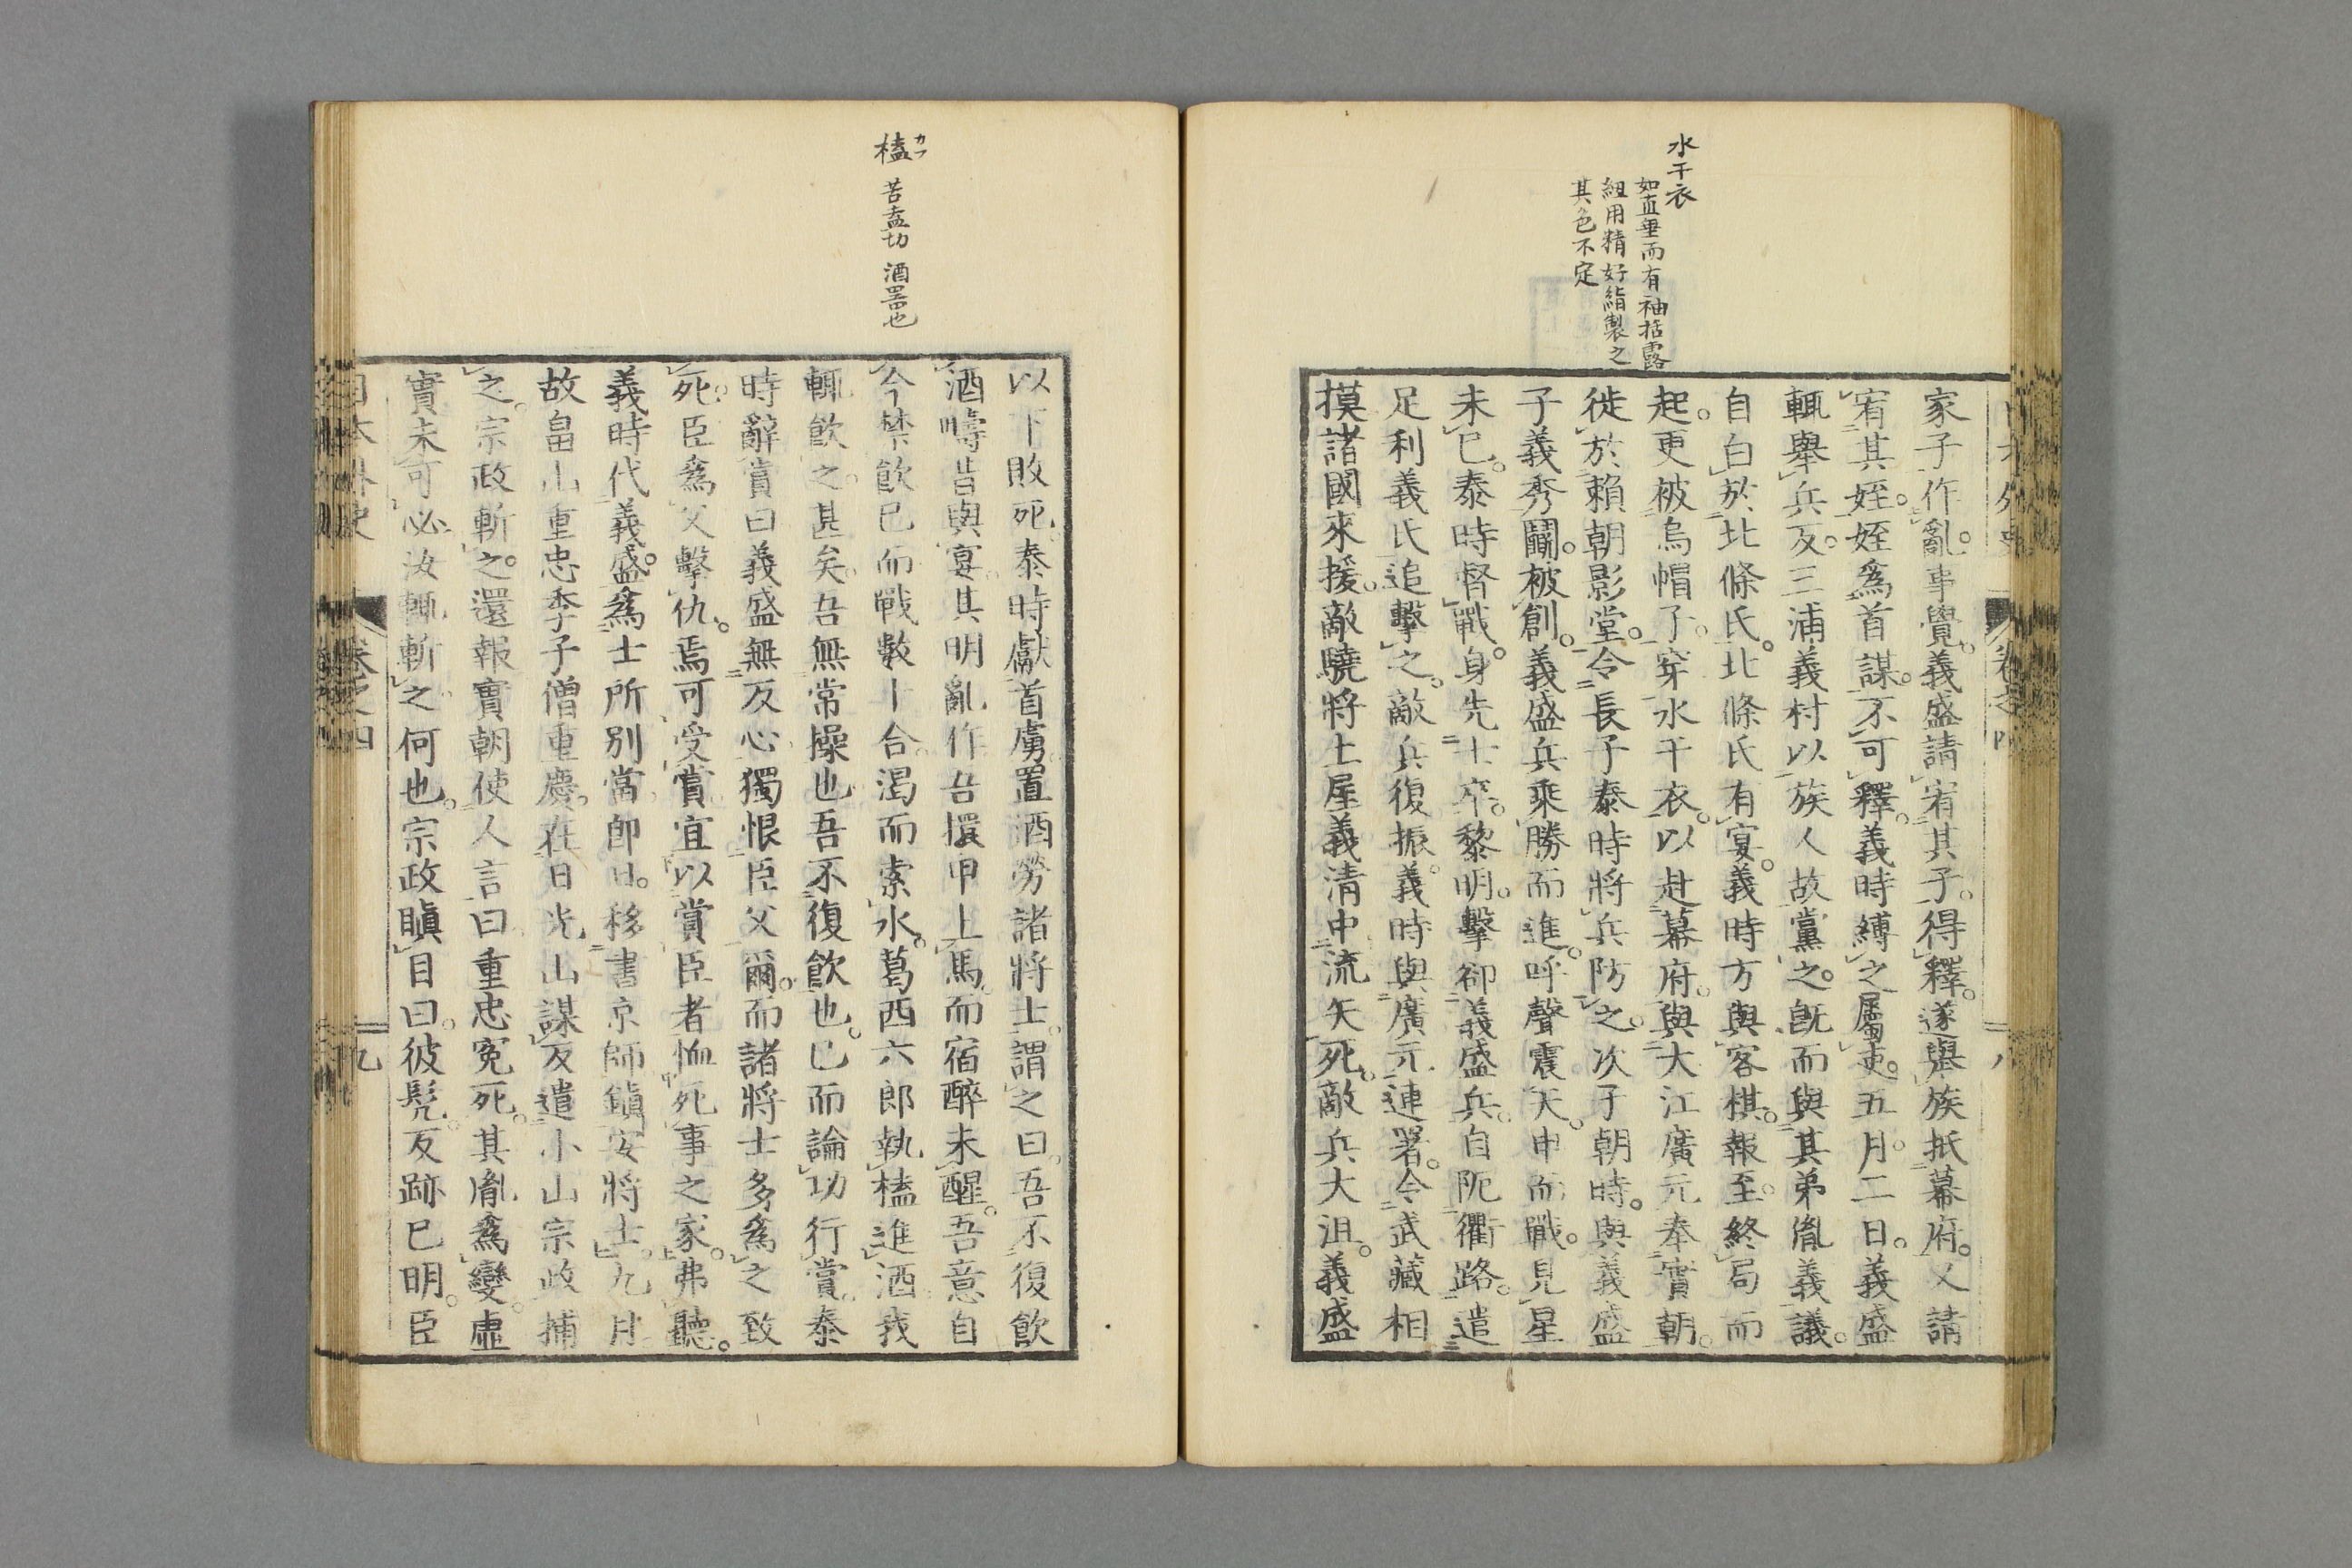 水干衣
如直垂而有袖括露
組用精好絹製之
其色不定
家子作亂。事覺。義盛請宥其子。得釋。遂舉族抵幕府。又請
宥其姪。姪爲首謀。不可釋。義時縛之屬吏。五月二日。義盛
輒舉兵反。三浦義村以族人故黨之。既而與其弟胤義議。
自白於北條氏。北條氏有宴。義時方與客棋。報至。終局而
起。更被烏帽子。穿水干衣。以赴幕府。與大江廣元奉實朝。
徙於賴朝影堂。令長子泰時將兵防之。次子朝時。與義盛
子義秀鬭。被創。義盛兵乘勝而進。呼聲震天。申而戰。見星
未已。泰時督戰。身先士卒。黎明。擊卻義盛兵。自阨衢路。遣
足利義氏追擊之。敵兵復振。義時與廣元連署。令武藏相
摸諸國來援。敵驍將土屋義淸中流矢死。敵兵大沮。義盛
日本外史 卷之四 八
榼 カフ
苦盍切 酒器也
以下敗死。泰時獻首虜。置酒勞諸將士。謂之曰。吾不復飮
酒。嚮昔與宴。其明亂作。吾擐甲上馬。而宿醉未醒。吾意自
今禁飮。已而戰數十合。渴而索水。葛西六郎執榼進酒。我
輒飮之。甚矣。吾無常操也。吾不復飮也。已而論功行賞。泰
時辭賞曰。義盛無反心。獨恨臣父爾。而諸將士多爲之致
死。臣爲父擊仇。焉可受賞。宜以賞臣者恤死事之家。弗聽。
義時代義盛。爲士所別當。卽日。移書京師。鎭安將士。九月
故畠山重忠季子僧重慶。在日光山謀反。遣小山宗政捕
之。宗政斬之。還報。實朝使人言曰。重忠冤死。其胤爲變。虛
實未可必。汝輒斬之何也。宗政瞋目曰。彼髡。反跡已明。臣
日本外史 卷之四 九